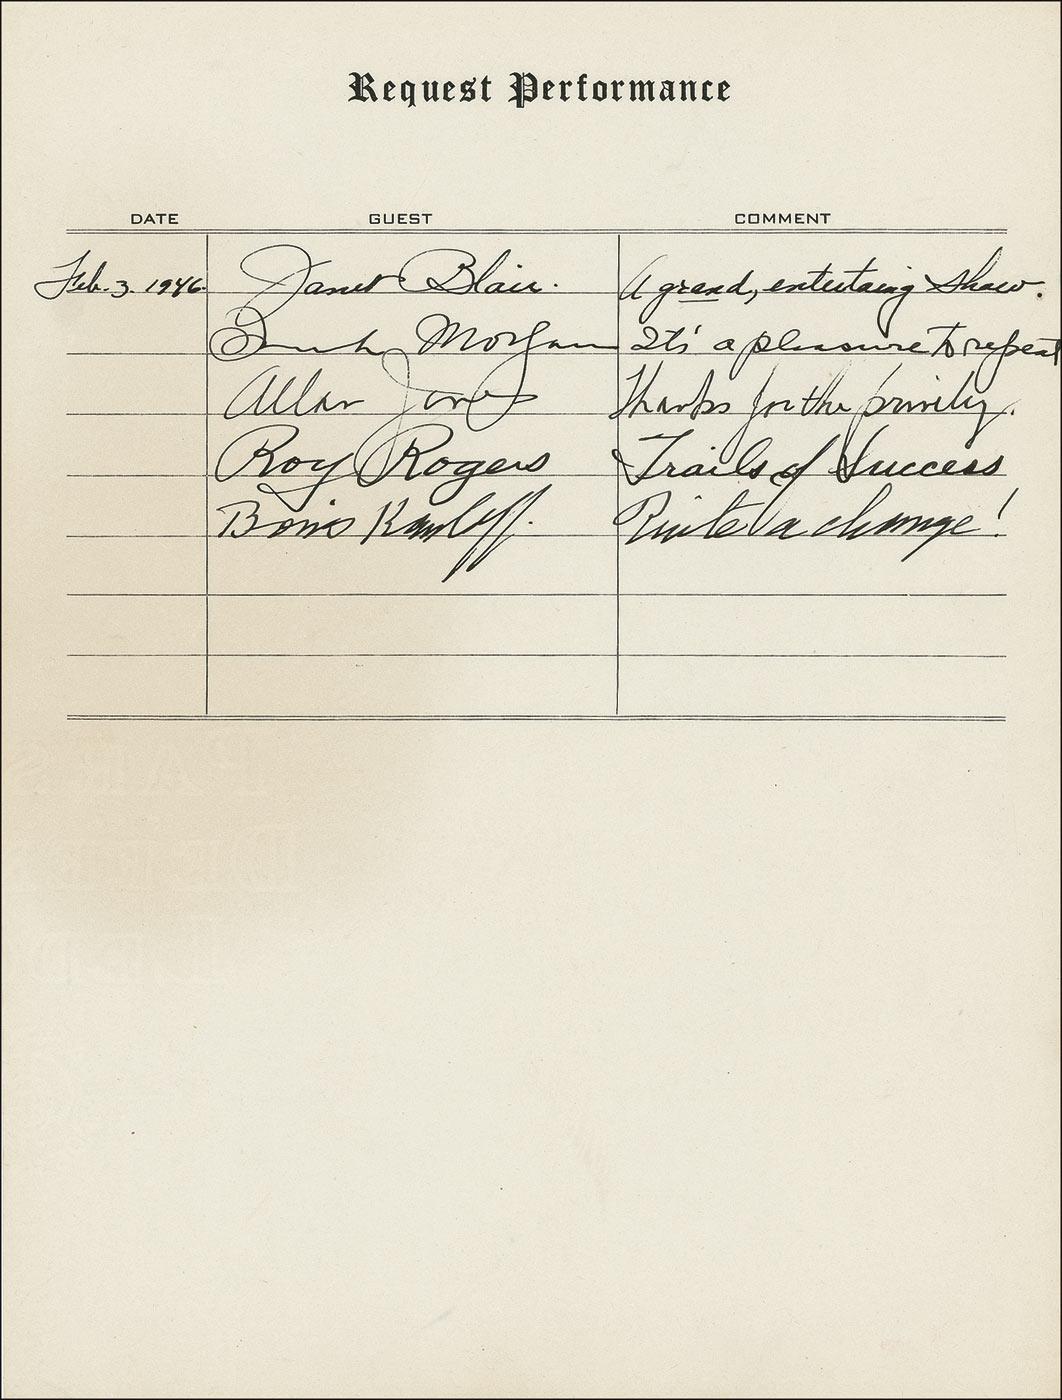 Request Performance
DATE GUEST COMMENT
Feb. 3. 1946. Janet Blair. A grand, entertaing show.
Frank Morgan It's a pleasure to repeat
Allan Jones Thanks for the
Roy Rogers Trails of Success
Boris Karloff. Quite a change!